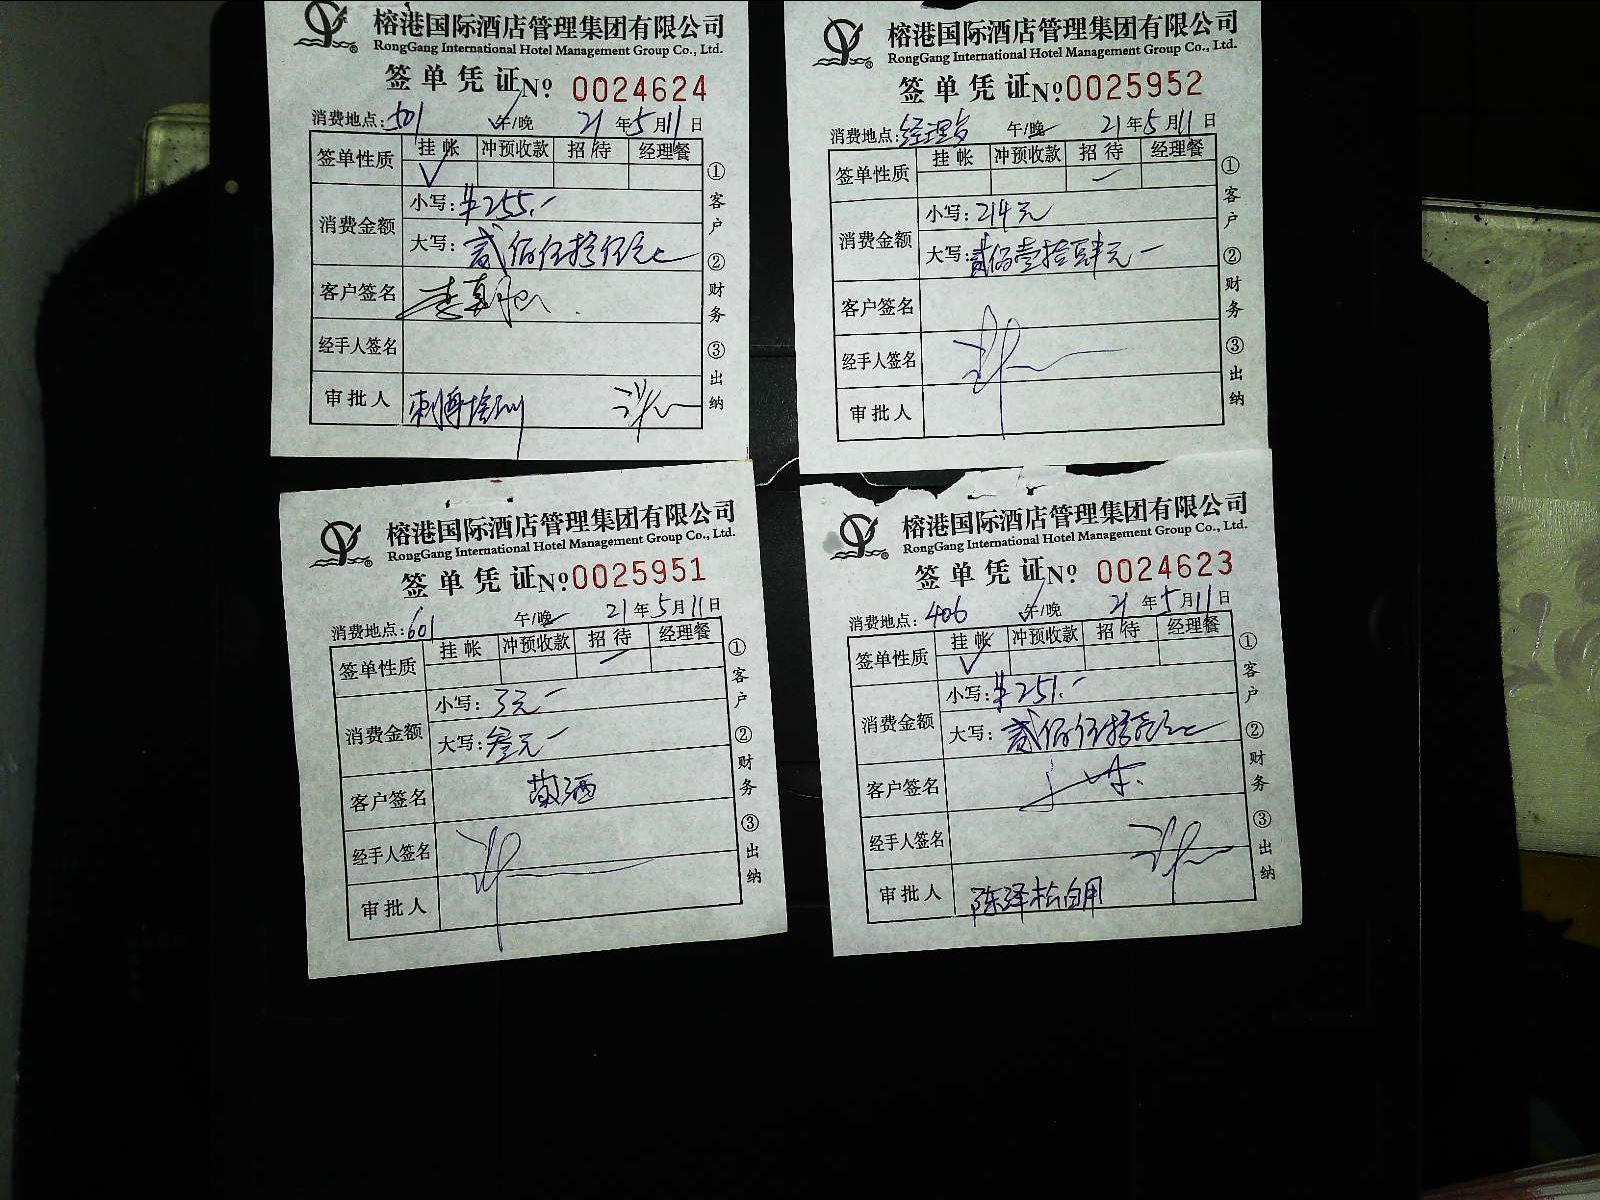 榕港国际酒店管理集团有限公司
RongGang International Hotel Management Group Co., Ltd.
签单凭证 № 0024624
消费地点:501 午/晚 21年5月11日
签单性质 挂帐 冲预收款 招待 经理餐
✓
消费金额 小写:¥255.-
大写:贰佰伍拾伍元
客户签名
经手人签名
审批人
①客户 ②财务 ③出纳
榕港国际酒店管理集团有限公司
RongGang International Hotel Management Group Co., Ltd.
签单凭证 №0025952
消费地点:经理 午/晚 21年5月11日
签单性质 挂帐 冲预收款 招待 经理餐
消费金额 小写:214元
大写:贰佰壹拾肆元
客户签名
经手人签名
审批人
①客户 ②财务 ③出纳
榕港国际酒店管理集团有限公司
RongGang International Hotel Management Group Co., Ltd.
签单凭证 №0025951
消费地点:601 午/晚 21年5月11日
签单性质 挂帐 冲预收款 招待 经理餐
消费金额 小写:3元
大写:叁元
客户签名
经手人签名
审批人
①客户 ②财务 ③出纳
榕港国际酒店管理集团有限公司
RongGang International Hotel Management Group Co., Ltd.
签单凭证 № 0024623
消费地点:406 午/晚 21年5月11日
签单性质 挂帐 冲预收款 招待 经理餐
✓
消费金额 小写:¥251.-
大写:贰佰伍拾壹元
客户签名
经手人签名
审批人 陈泽松自用
①客户 ②财务 ③出纳